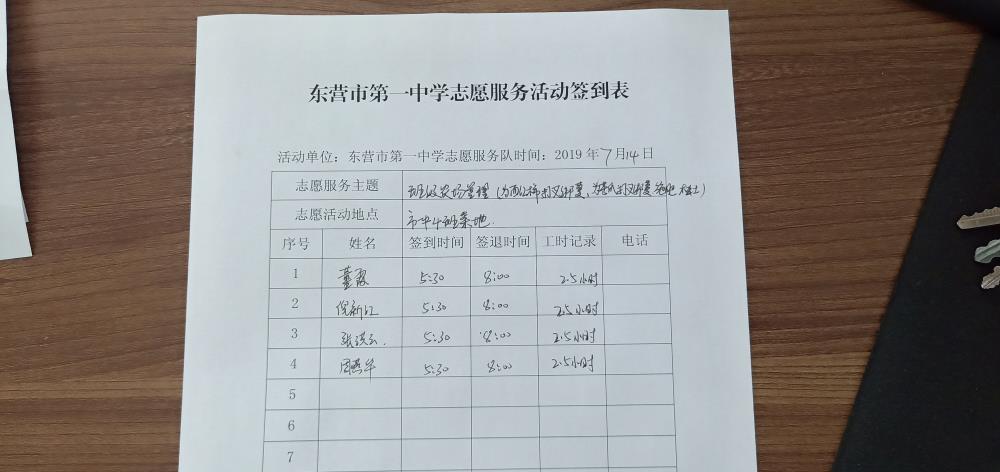 东营市第一中学志愿服务活动签到表
活动单位：东营市第一中学志愿服务队时间：2019年7月14日
志愿服务主题 班级农场管理（为西红柿打叉绑蔓、为黄瓜打叉绑蔓
志愿活动地点 市中4班菜地
序号 姓名 签到时间 签退时间 工时记录 电话
1 董霞 5:30 8:00 2.5小时
2 倪新江 5:30 8:00 2.5小时
3 张洪云. 5:30 8:00 2.5小时
4 周燕华 5:30 8:00 2.5小时
5
6
7